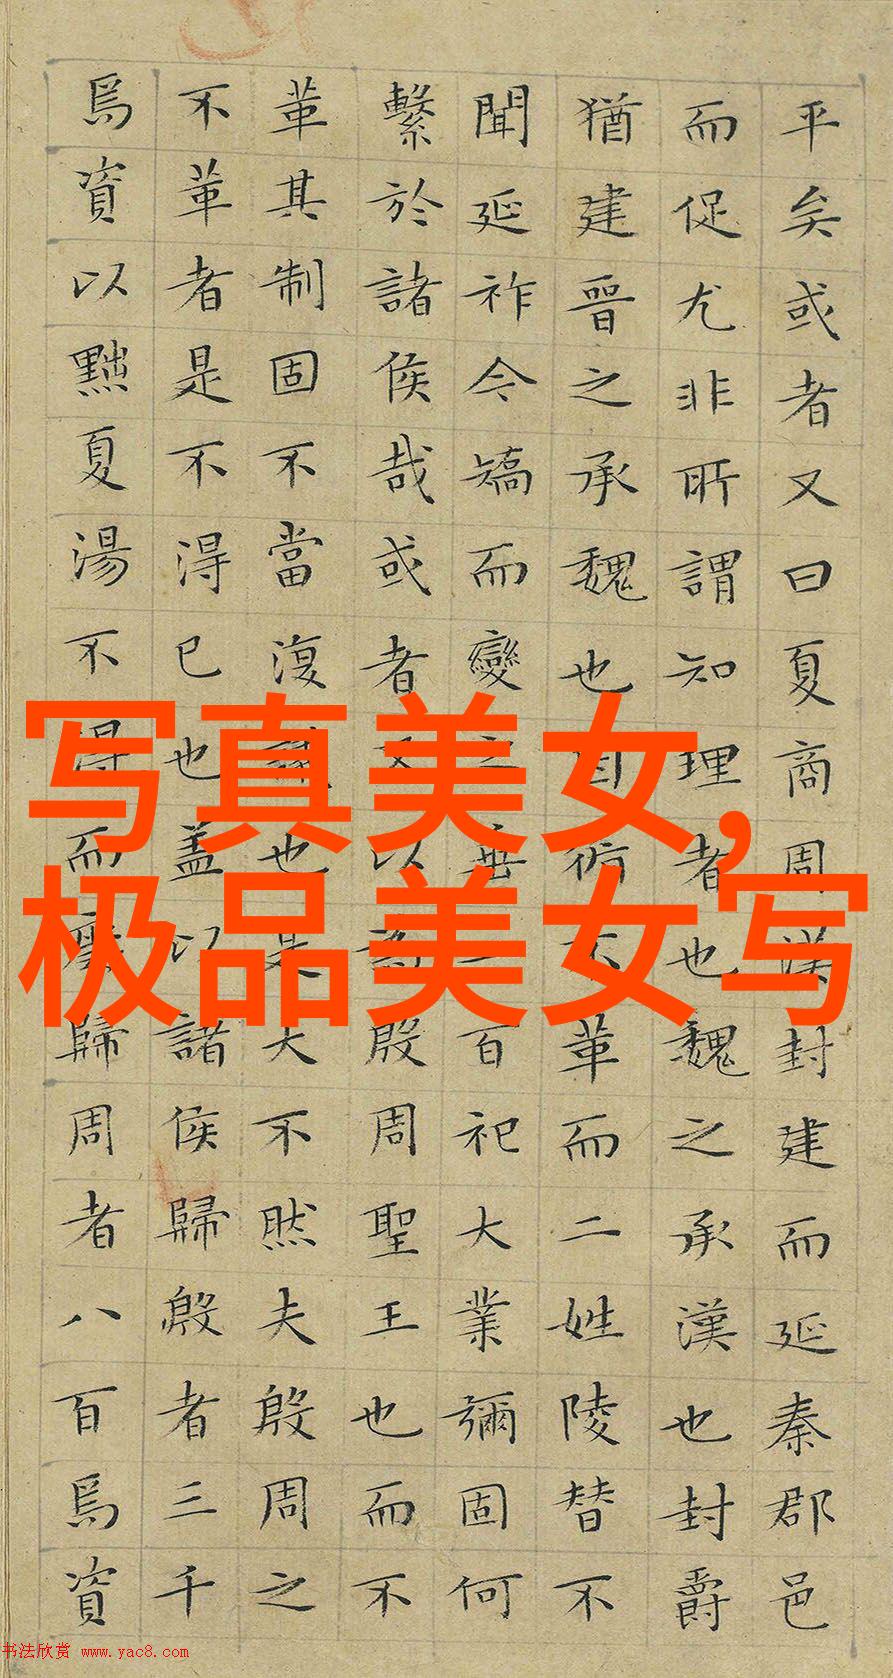 平矣或者又曰夏商周漢封建而延秦郡邑
而促尤非所謂知理者也魏之承漢也封爵
猶建晉之承魏也因循不革而二姓陵替不
聞延祚今矯而變之垂二百祀大業彌固何
繫於諸侯哉或者又以為殷周聖王也而不
革其制固不當復也是大不然夫殷周之
不革者是不得已也蓋以諸侯歸殷者三千
焉資以黜夏湯不得而廢歸周者八百焉資
写真美女,
极品美女写
书法欣赏 www.yac8.com